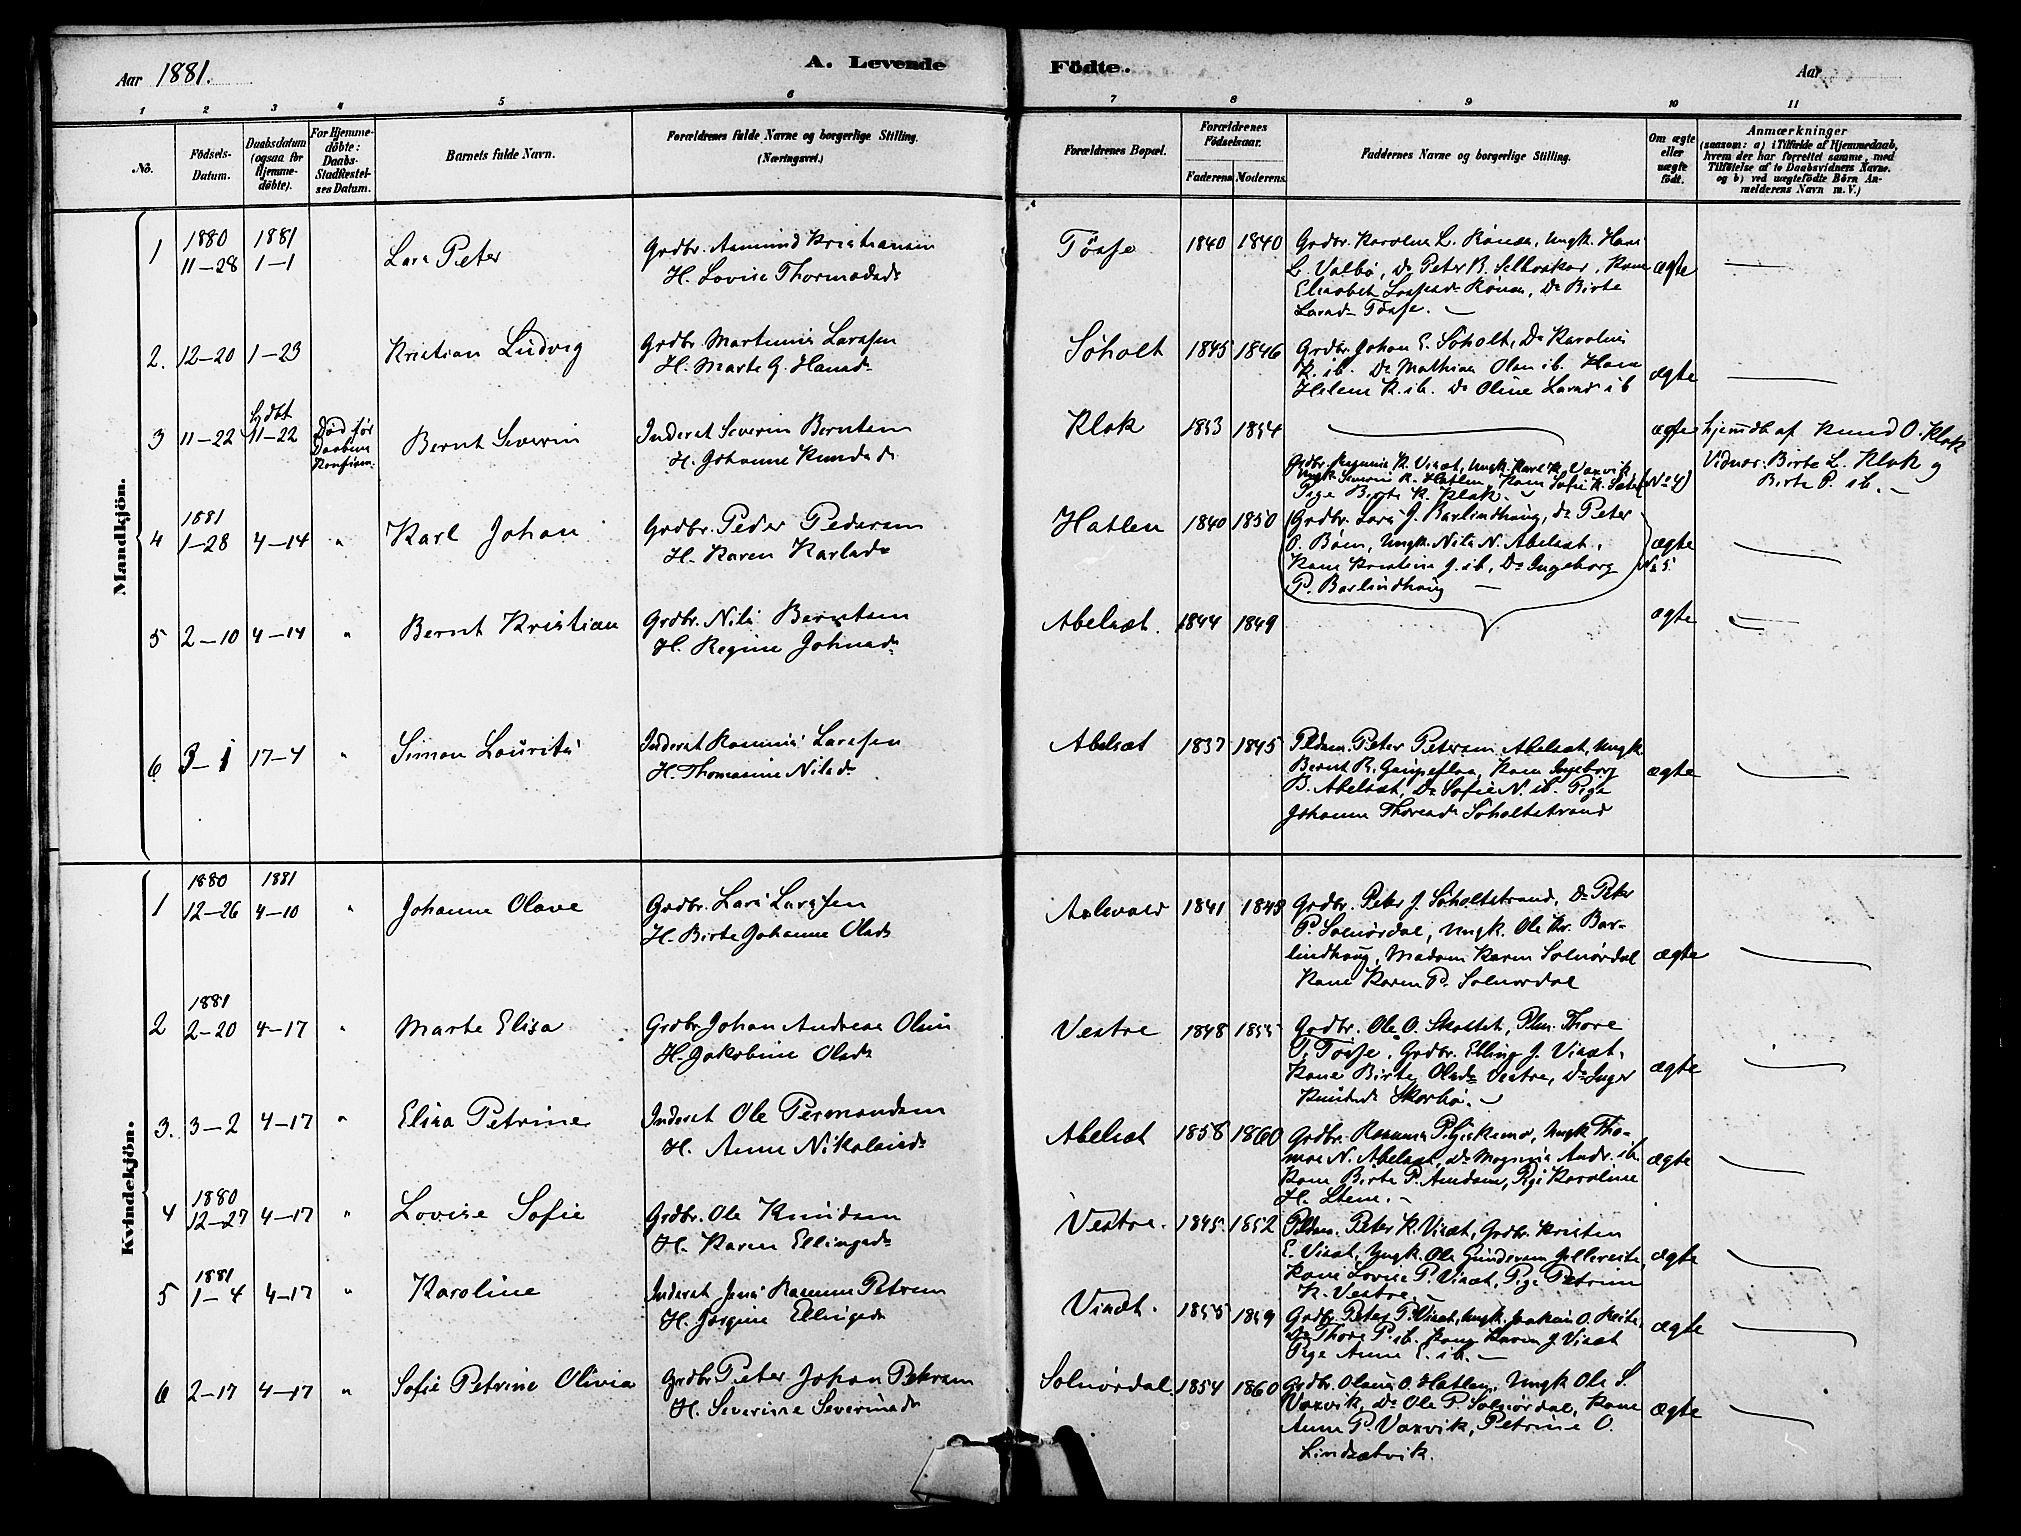 Aar 1881.
A. Levende
Födte.
Aar
1 2 3 4 5 6 7 8 9 10 11
No.
Födsels-
Datum.
Daabsdatum
(ogsaa for
Hjemme-
döbte).
For Hjemme-
döbte:
Daabs-
Stadfæstel-
ses Datum.
Barnets fulde Navn.
Forældrenes fulde Navne og borgerlige Stilling.
(Næringsvei.)
Forældrenes Bopæl.
Forældrenes
Födselsaar.
Faderens Moderens.
Faddernes Navne og borgerlige Stilling.
Om ægte
eller
uægte
födt.
Anmærkninger
(saasom: a) i Tilfælde af Hjemmedaab,
hvem der har forrettet samme, med
Tilföielse af to Daabsvidners Navne.
og b) ved uægtefödte Börn An-
melderens Navn m. V.)
Mandkjön.
1 1880 11–28 1881 1–1 Lars Peter
Grdbr. Asmund Kristiansen
H. Lovise Thormodsd.
Tösse 1840 1840
Grdbr. Karolus L. Rönes, Ungk. Hans
L. Valbö, Do Peter B. Selbvskar, Kone
Elisabet Rönes, Do Birte
Larsd. Tösse. —
ægte —
2. 12–20 1–23 Kristian Ludvig
Grdbr. Martinus Larssen
H. Marte G. Hansd.
Söholt 1845 1846
Grdbr. Johan E. Söholt, Do Karolus
K. ib. Do Mathias Olsen ib. Kone
Helene K. ib. Do Oline Larsd. ib
ægte —
3 11–22 11–22 Död för
Daabens
Konfirm.
Bernt Severin
Inderst Severin Berntsen
H. Johanne Knudsd.
Klok 1853 1854 —
ægte hjemdb. af Knud O. Klok
Vidner: Birte L. Klok og
Birte P. ib. —
4 1881 1–28 4–14 " Karl Johan
Grdbr. Peder Pedersen
H. Karen Karlsd.
Hatlen 1840 1850
Grdbr. Rasmus K. Viset, Ungk. Karl K. Vaxvik
Ungk. Severin R. Hatlen, Kone Sofie K. (No 4)
Pige Birte K. Klok. —
ægte —
5 2–10 4–14 " Bernt Kristian
Grdbr. Nils Berntsen
H. Regine Johnsd.
Abelsæt. 1844 1849
Grdbr. Lars J. Barlindhaug, Do Peter
O. Böen, Ungk. Nils N. Abelsæt,
Kone Kristine J. ib, Do Ingeborg No 5
P. Barlindhaug —
ægte —
6 3–1 17–4 " Simon Lauritz
Inderst Rasmus Larssen
H. Thomasine Nilsd.
Abelsæt 1837 1845
Pldsm. Peter Petersen Abelsæt, Ungk.
Bernt R. Gaupefloa, Kone Ingeborg
B. Abelsæt, Do Sofie N. ib. Pige
Johanne Thoresd. Söholtstrand
ægte —
Kvindekjön.
1 1880 12–26 1881 4–10 " Johanne Olave
Grdbr. Lars Larssen
H. Birte Johanne Olsd.
Aalesund 1841 1843
Grdbr. Peter J. Söholtstrand, Do Peter
P. Solnördal, Ungk. Ole Kr. Bar-
lindhaug, Madam Karen Solnördal
Kone Karen P. Solnördal
ægte —
2 1881 2–20 4–17 " Marte Elisa
Grdbr. Johan Andreas Olsen
H. Jakobine Olsd.
Vestre 1848 1855
Grdbr. Ole O. Skottet, Plm. Thore
T. Tösse, Grdbr. Elling J. Viset,
Kone Birte Olsd. Vestre, Do Inger
Knudsd. Skorbö. —
ægte —
3. 3–2 4–17 " Elisa Petrine
Inderst Ole Permondsen
H. Anne Nikolaisd.
Abelsæt 1858 1860
Grdbr. Rasmus P. Gjeskemo, Ungk Tho-
mas N. Abelsæt, Do Mogens Andr. ib.
Kone Birte P. Amdam, Pige Karoline
H. Stene. —
ægte —
4 1880 12–27 4–17 " Lovise Sofie
Grdbr. Ole Knudsen
H. Karen Ellingsd.
Vestre. 1845. 1852
Pldsm. Peter K. Viset, Grdbr. Kristen
E. Viset, Ungk. Ole Gundersen
Kone Lovise P. Viset, Pige Petrine
K. Vestre. —
ægte —
5 1881 1–4 4–17 " Karoline
Inderst Jens Rasmus Petersen
H. Jorgine Ellingsd.
Viset. 1855 1859
Grdbr. Peter P. Viset, Ungk. Joakim O. Reite,
Do Thore P. ib. Kone Karen J. Viset
Pige Anne E. ib. —
ægte —
6 2–17 4–17 " Sofie Petrine Olivia
Grdbr. Peter Johan Petersen
H. Severine Severinsd.
Solnördal. 1854 1860
Grdbr. Olaus O. Hatlen, Ungk Ole S.
Vaxvik, Do Ole P. Solnördal, Kone
Anne P. Vaxvik, Petrine O.
Lindsætvik.
ægte —